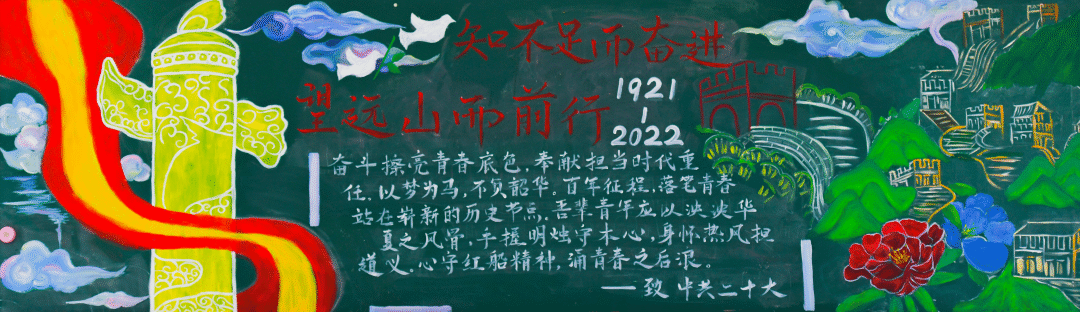 知不足而奋进
望远山而前行
1921
-
2022
奋斗擦亮青春底色,奉献担当时代重
任,以梦为马,不负韶华。百年征程,落笔青春
站在崭新的历史节点,吾辈青年应以泱泱华
夏之风骨,手握明烛守本心,身怀热风担
道义,心守红船精神,涌青春之后浪。
——致中共二十大